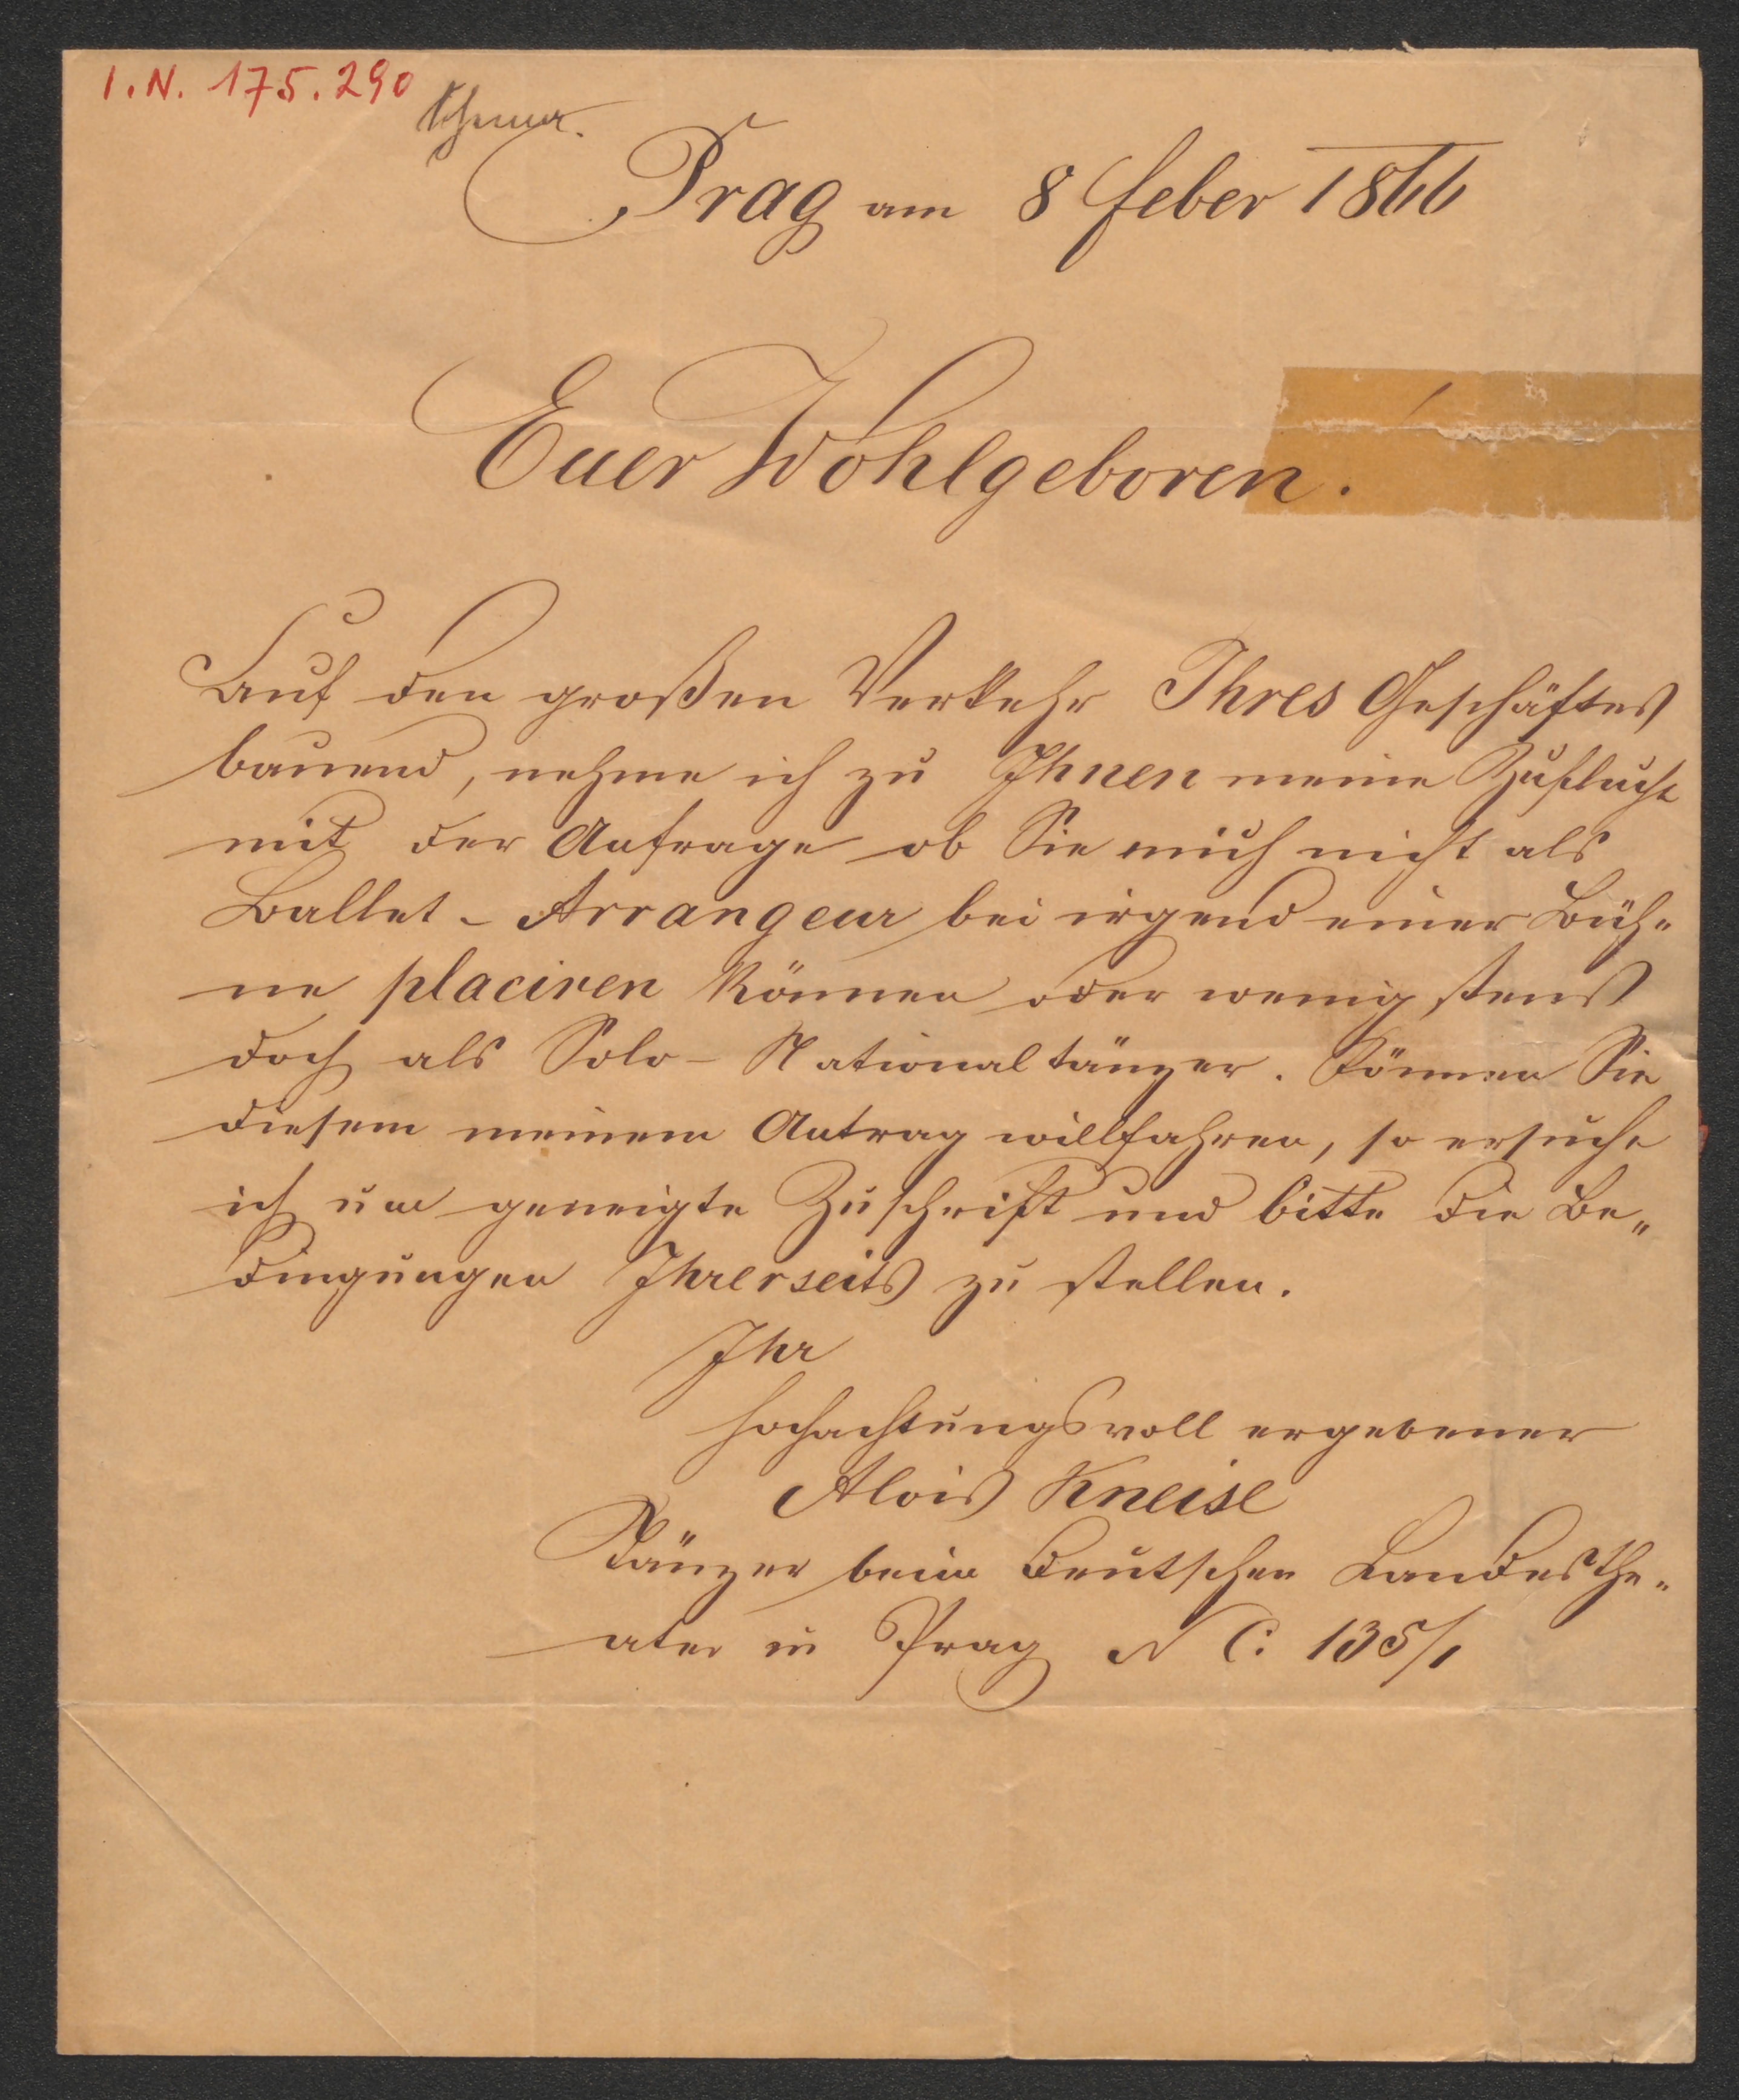 I.N. 175.290
Prag am 8 feber 1866
Euer Wohlgeboren.
Auf den großen Verkehr Ihres Geschäftes
bauend, nehme ich zu Ihnen meine Zuflucht
mit der Anfrage ob Sie mich nicht als
Ballet-Arrangeur bei irgend einer Büh„
ne placiren können oder wenigstens
doch als Solo-Nationaltänzer. Können Sie
diesem meinem Antrag willfahren, so ersuche
ich um geneigte Zuschrift und bitte die Be„
dingungen Ihrerseits zu stellen.
Ihr
hochachtungsvoll ergebener
Alois Kneise
Tänzer beim deutschen Landesthe„
ater in Prag N C. 135/1